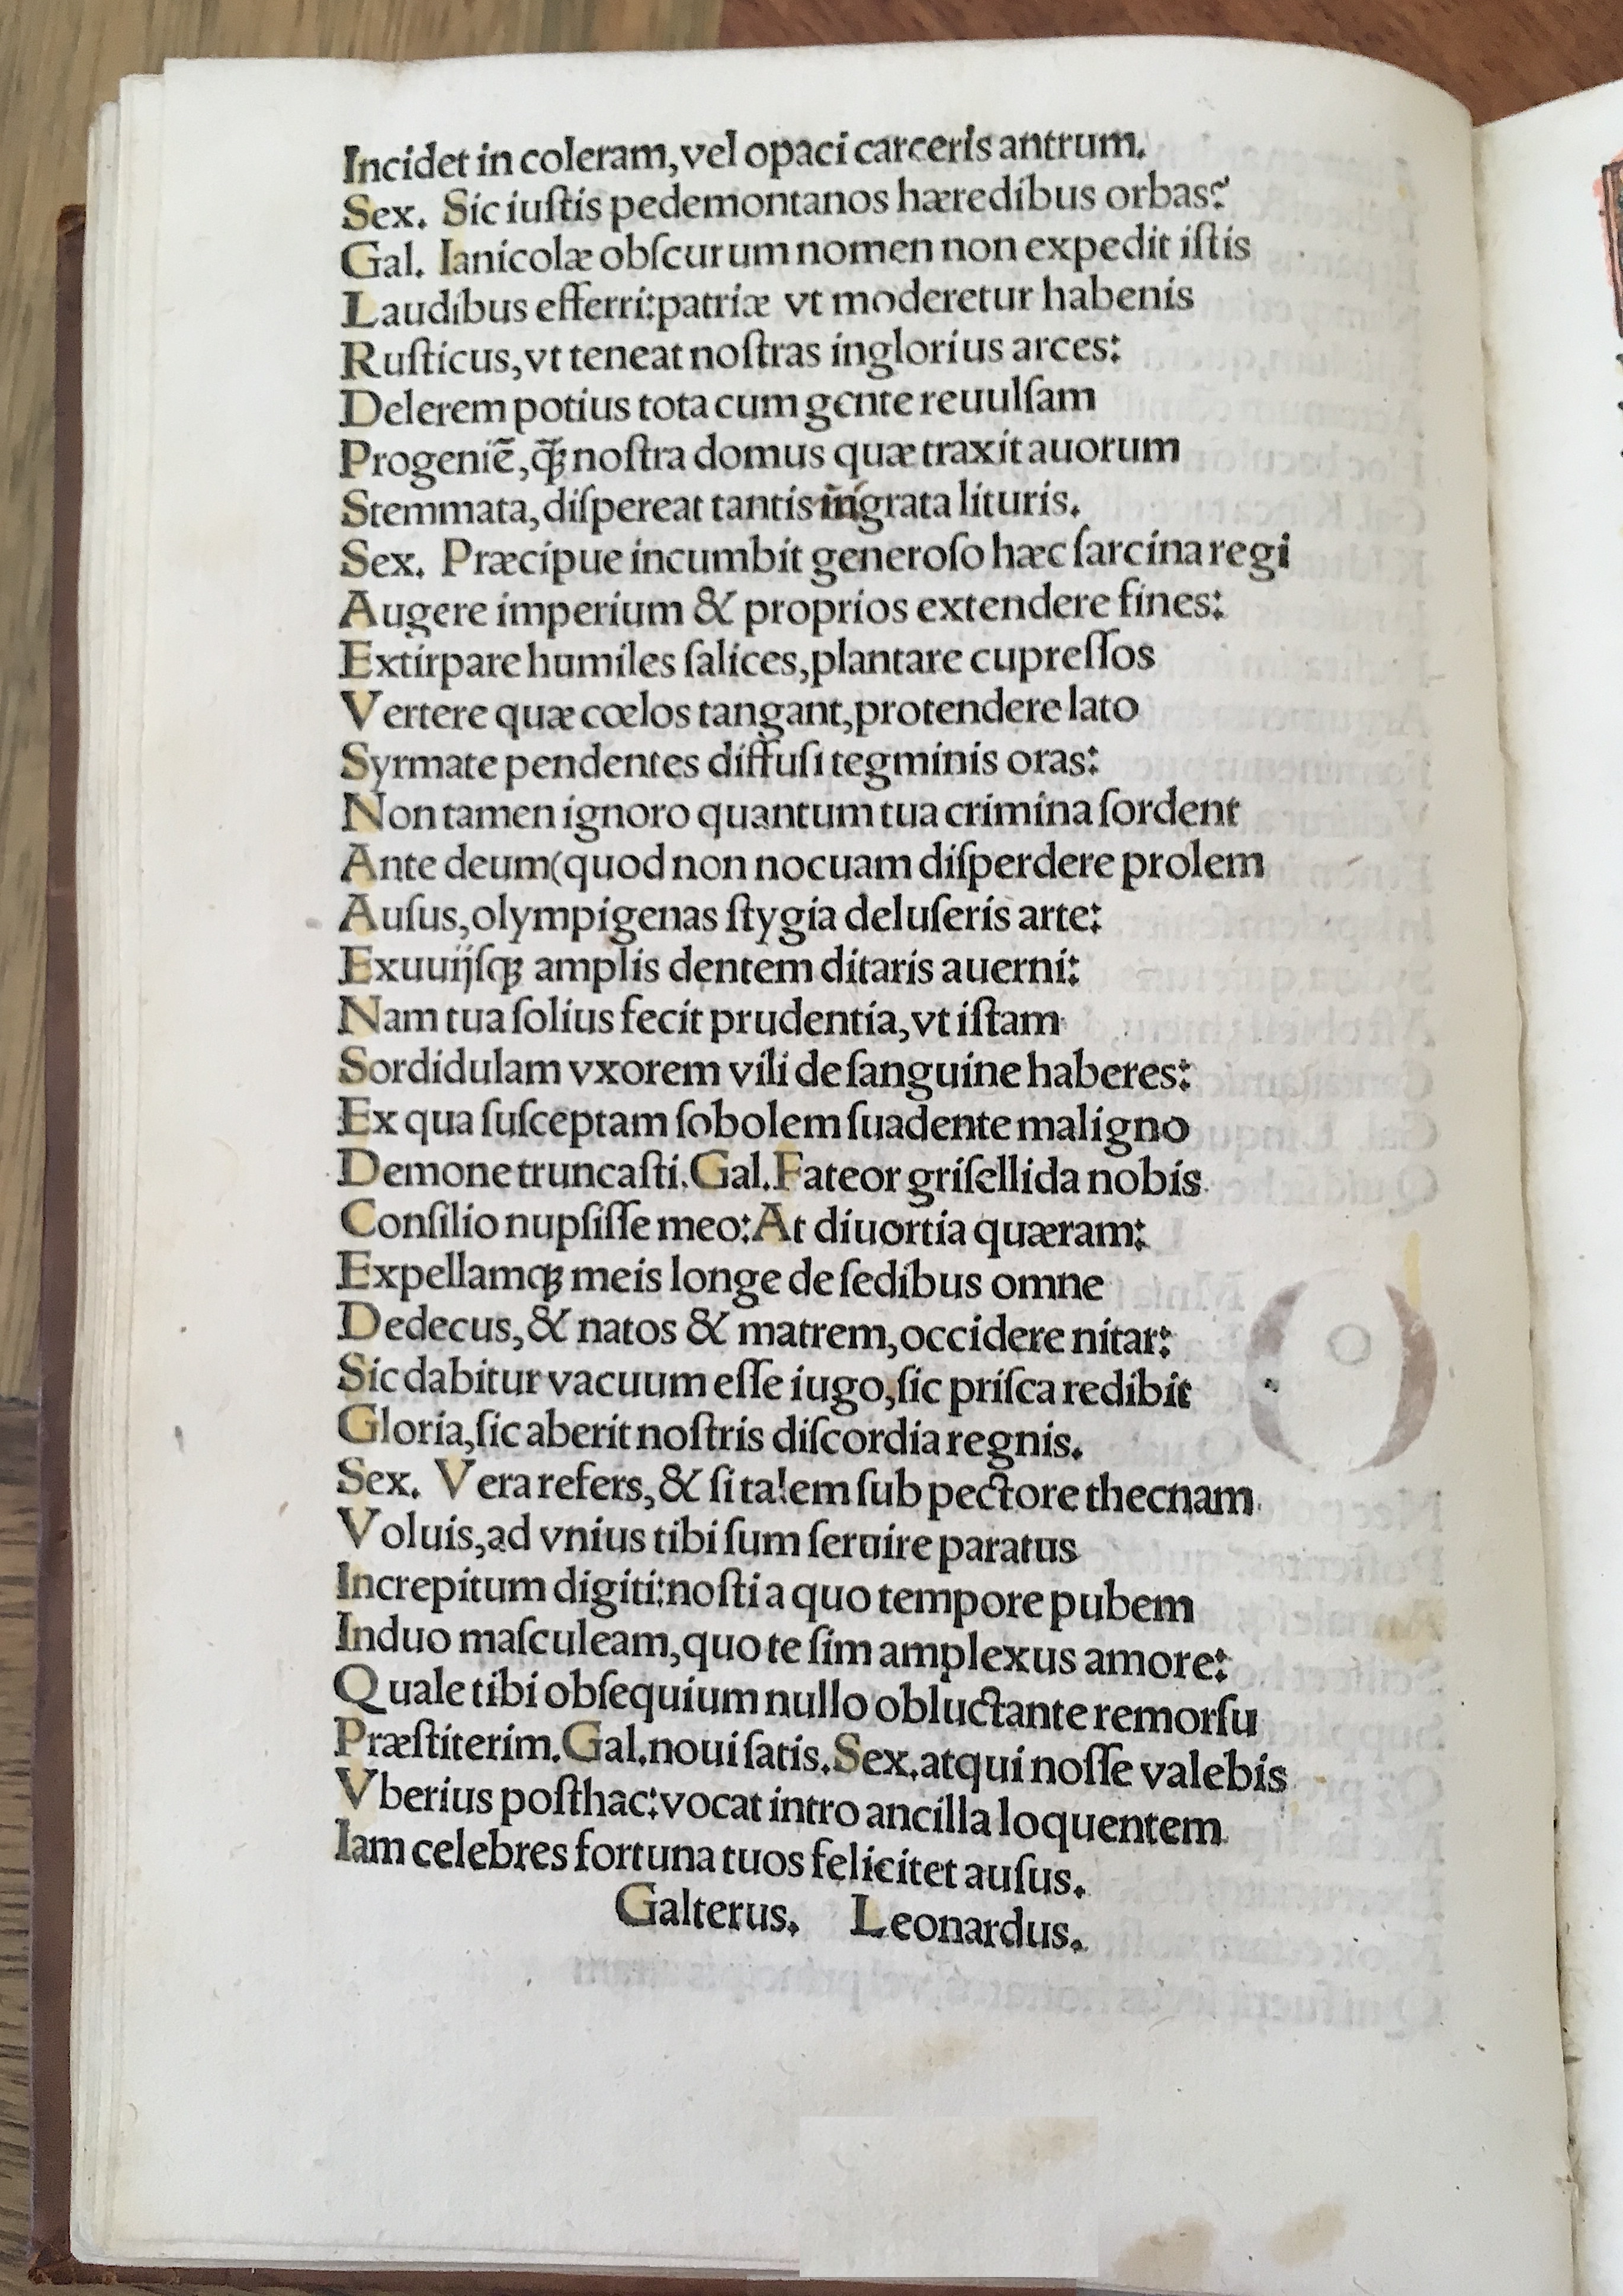 Incidet in coleram, vel opaci carceris antrum.
Sex. Sic iuſtis pedemontanos hæredibus orbas?
Gal. Ianicolæ obſcurum nomen non expedit iſtis
Laudibus efferri: patriæ vt moderetur habenis
Ruſticus, vt teneat noſtras inglorius arces:
Delerem potius tota cum gente reuulſam
Progeniē, q̄ꝫ noſtra domus quæ traxit auorum
Stemmata, diſpereat tantis ingrata lituris.
Sex. Præcipue incumbit generoſo hæc ſarcina regi
Augere imperium & proprios extendere fines:
Extirpare humiles ſalices, plantare cupreſſos
Vertere quæ cœlos tangant, protendere lato
Syrmate pendentes diffuſi tegminis oras:
Non tamen ignoro quantum tua crimina ſordent
Ante deum (quod non nocuam diſperdere prolem
Auſus, olympigenas ſtygia deluſeris arte:
Exuuijſqꝫ amplis dentem ditaris auerni:
Nam tua ſolius fecit prudentia, vt iſtam
Sordidulam vxorem vili de ſanguine haberes:
Ex qua ſuſceptam ſobolem ſuadente maligno
Demone truncaſti. Gal. Fateor griſellida nobis
Conſilio nupſiſſe meo: At diuortia quæram:
Expellamqꝫ meis longe de ſedibus omne
Dedecus, & natos & matrem, occidere nitar:
Sic dabitur vacuum eſſe iugo, ſic priſca redibit
Gloria, ſic aberit noſtris diſcordia regnis.
Sex. Vera refers, & ſi talem ſub pectore thecnam
Voluis, ad vnius tibi ſum ſeruire paratus
Increpitum digiti: noſti a quo tempore pubem
Induo maſculeam, quo te ſim amplexus amore:
Quale tibi obſequium nullo obluctante remorſu
Præſtiterim. Gal. noui ſatis. Sex. atqui noſſe valebis
Vberius poſthac: vocat intro ancilla loquentem
Iam celebres fortuna tuos felicitet auſus.
Galterus. Leonardus.